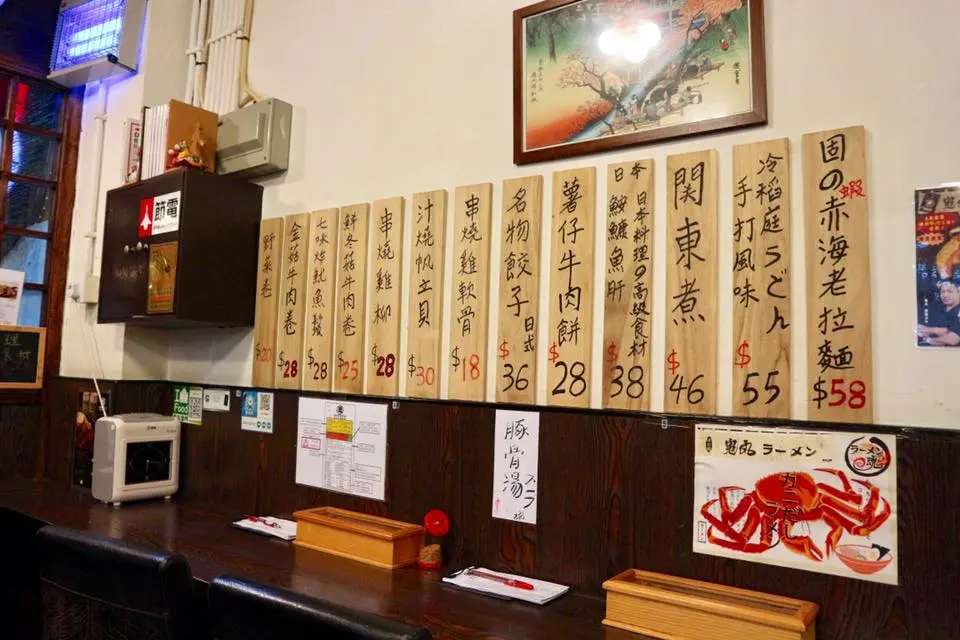 固の赤海老拉麵
蝦
$58
冷稻庭うどん
手打風味
$55
關東煮
$46
日本
日本料理の高級食材
鮟鱇魚肝
$38
薯仔牛肉餅
$28
名物餃子
日式
$36
串燒雞軟骨
$18
汁燒帆立貝
$30
串燒雞柳
$28
鮮冬菇牛肉卷
$25
七味炸魷魚鬚
$28
金菇牛肉卷
$28
野菜卷
$20
節電
豚骨湯
ラーメン
ラーメン
魂
カニだし
ラーメン
食材
Food